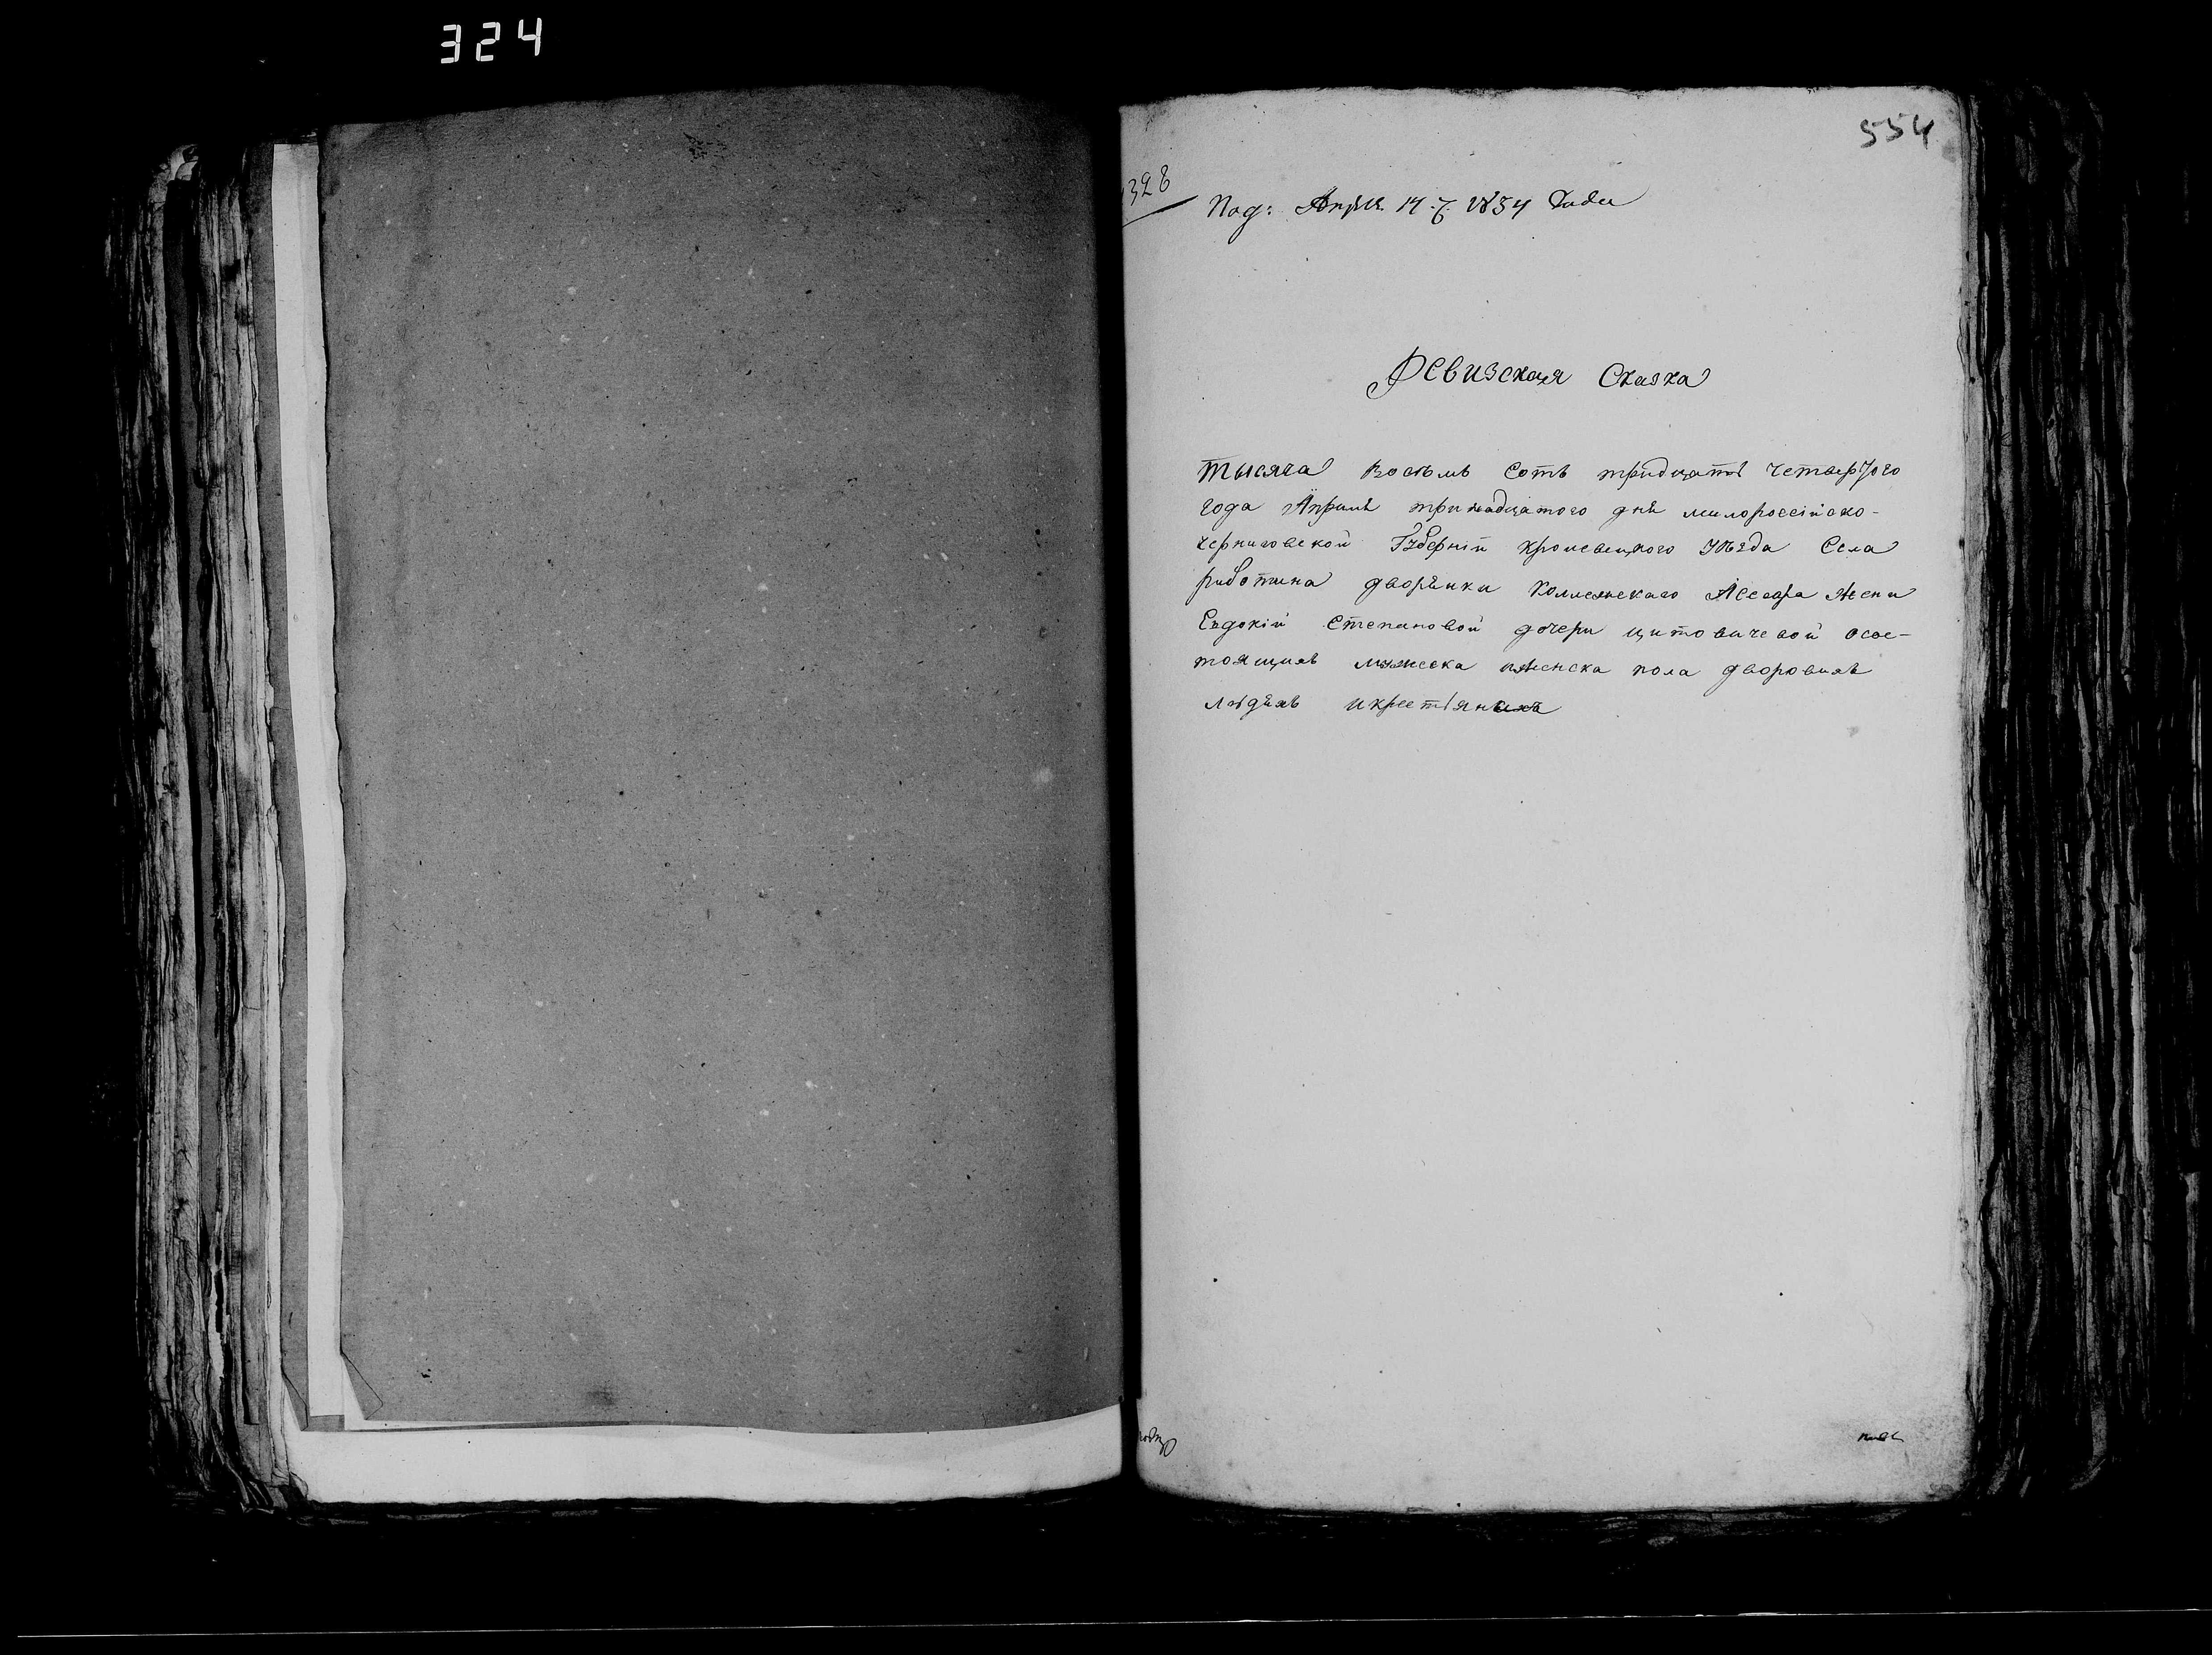 324
554
328
Под: Апрел. 14 д. 1834 Года
Ревизская Сказка
тысяча восемь сотъ тридцать четвертого
года Апреля тринадцатого дня малороссійско-
черниговской Губерніи кролевецкого Уѣзда Села
работина дворянки Коллежскаго Асесора жени
Евдокіи Степановой дочери цитовичевой осос-
тоящихъ мужеска ИЖенска пола дворовихъ
людяхъ Икрестьянахъ